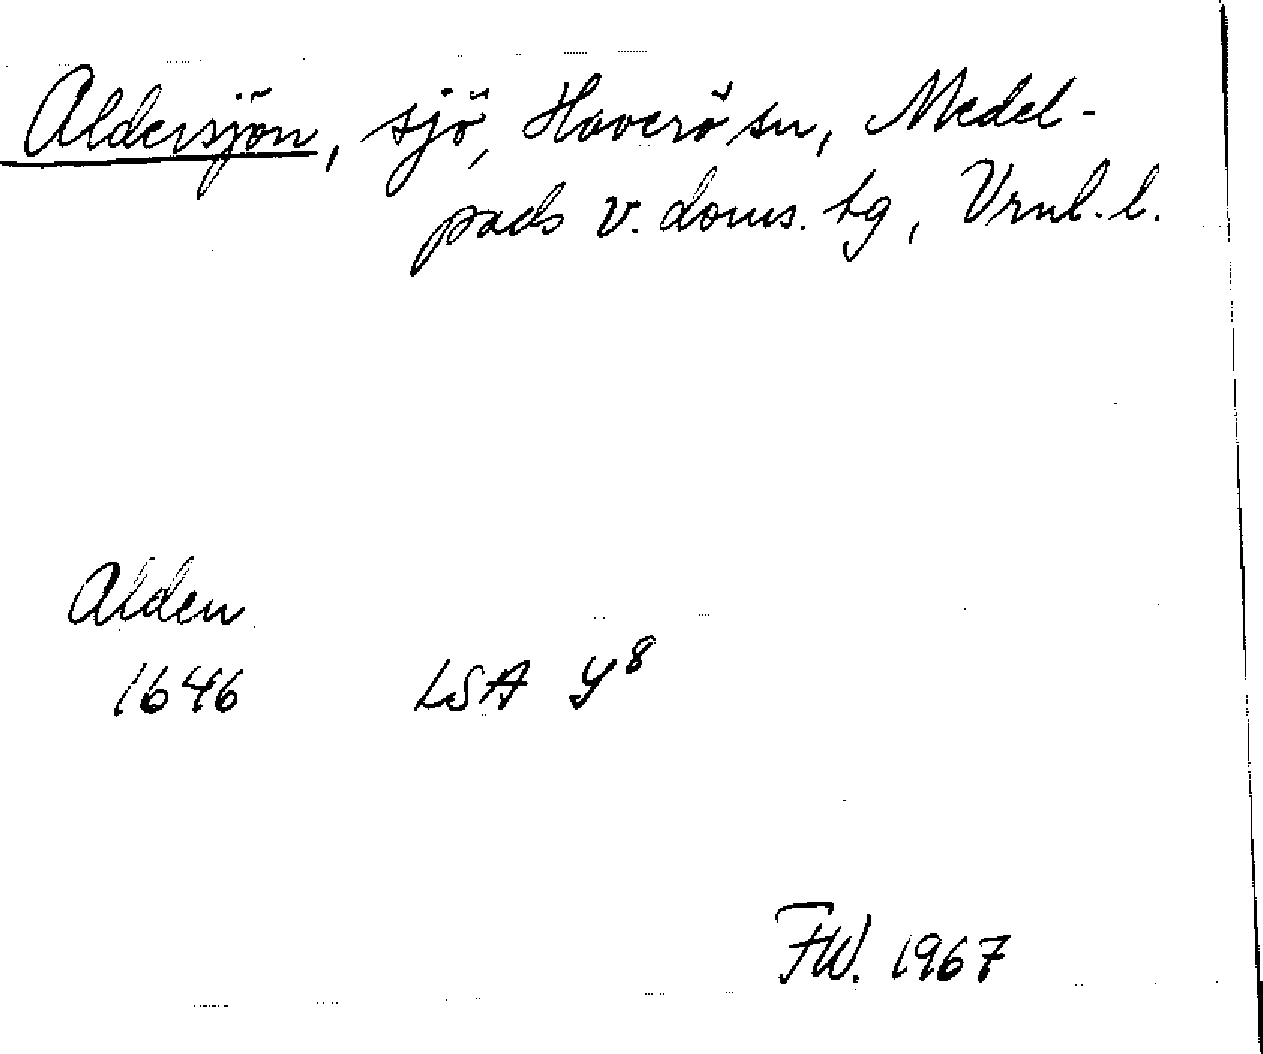 Aldersjön, sjö, Haverö sn, Medel-
pads v. doms. tg, Vrnl. l.
Alden
1646 LSA Y8
FW. 1967